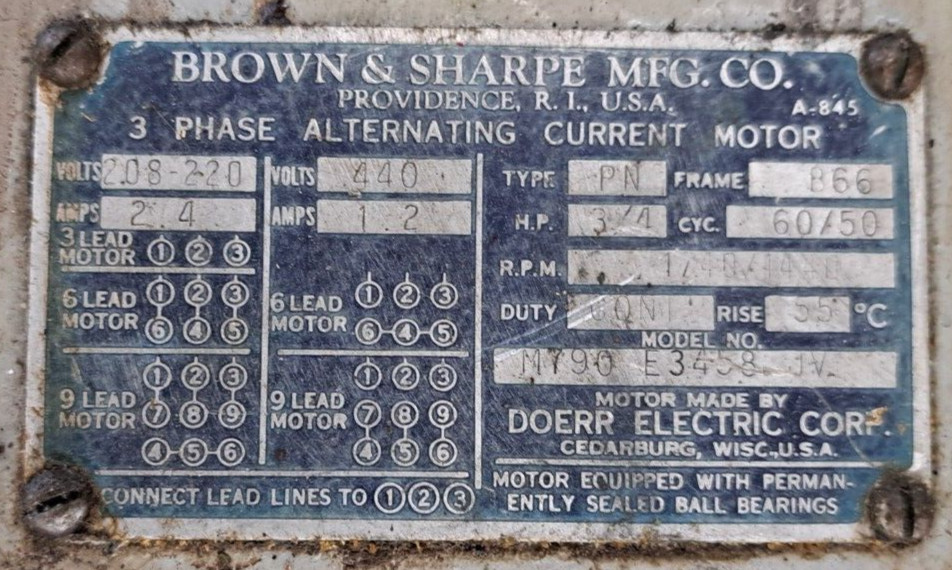 BROWN & SHARPE MFG. CO.
PROVIDENCE, R. I., U.S.A.
A-845
3 PHASE ALTERNATING CURRENT MOTOR
VOLTS 208-220
AMPS 2.4
3 LEAD MOTOR 1 2 3
6 LEAD MOTOR 1 2 3
6 4 5
9 LEAD MOTOR 1 2 3
7-8-9
4-5-6
VOLTS 440
AMPS 1.2
6 LEAD MOTOR 1 2 3
6-4-5
9 LEAD MOTOR 1 2 3
7 8 9
4 5 6
CONNECT LEAD LINES TO 1 2 3
TYPE PN FRAME B66
H.P. 3/4 CYC. 60/50
R.P.M.
DUTY CONT RISE 55 °C
MODEL NO.
M790 E3458 JV
MOTOR MADE BY
DOERR ELECTRIC CORP.
CEDARBURG, WISC., U.S.A.
MOTOR EQUIPPED WITH PERMAN-
ENTLY SEALED BALL BEARINGS